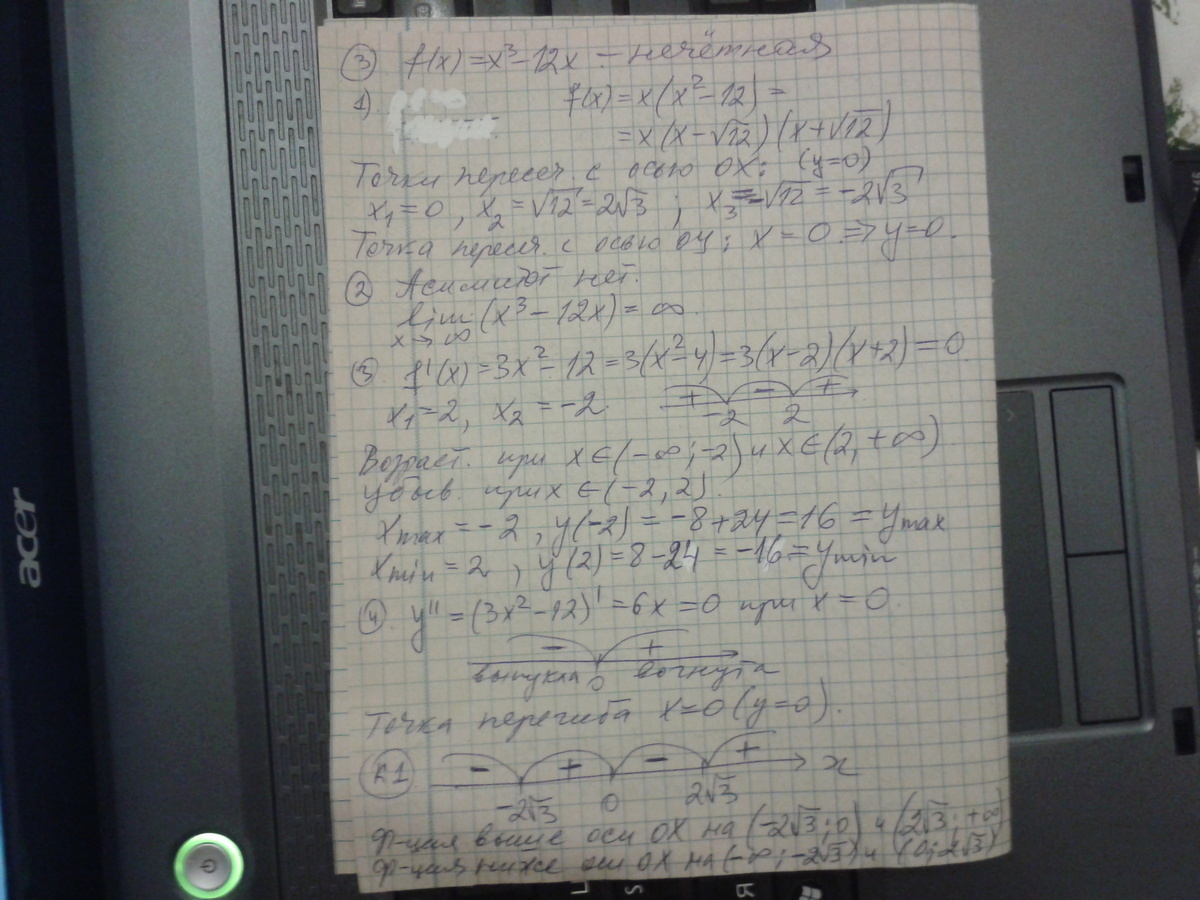 ③ f(x) = x³ – 12x – нечётная
1) f(x) = x(x² – 12) =
= x(x – √12)(x + √12)
Точки пересеч с осью OX: (y=0)
x₁ = 0, x₂ = √12 = 2√3 ; x₃ = –√12 = –2√3
Точка пересеч. с осью OY: x = 0 ⇒ y=0.
② Асимптот нет.
lim (x³ – 12x) = ∞.
x→∞
③ f'(x) = 3x² – 12 = 3(x² – 4) = 3(x–2)(x+2) = 0
x₁ = 2, x₂ = –2.
+ – +
–2 2
Возраст. при x∈(–∞; –2) и x∈(2, +∞)
Убыв. при x∈(–2, 2).
xmax = –2, y(–2) = –8+24 = 16 = ymax
xmin = 2, y(2) = 8–24 = –16 = ymin
④ y'' = (3x² – 12)' = 6x = 0 при x = 0.
– +
выпукла 0 вогнута
Точка перегиба x=0 (y=0).
К1 – + – + x
–2√3 0 2√3
Ф-ция выше оси OX на (–2√3; 0) и (2√3; +∞)
Ф-ция ниже оси OX на (–∞; –2√3) и (0; 2√3)
acer